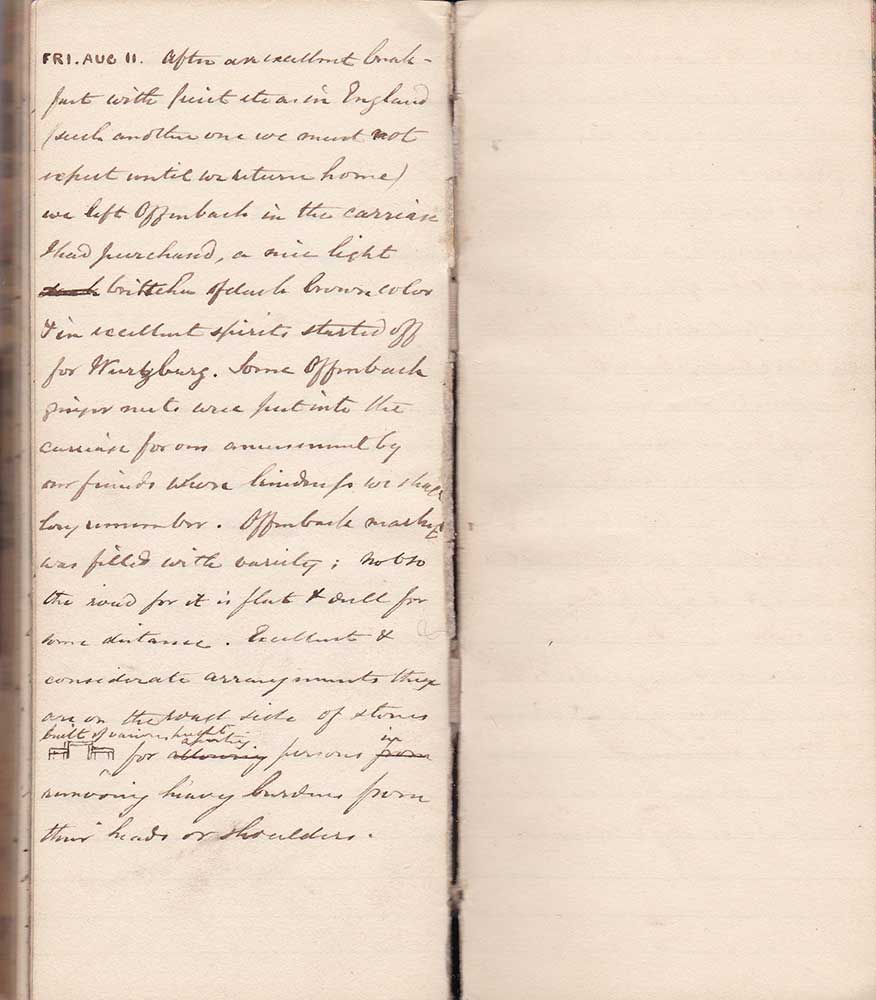 FRI. AUG 11. After an excellent break-
fast with fruit &c as in England
(such another one we must not
expect until we return home)
we left Offenbach in the carriage
I had purchased, a nice light
britschka of dark brown color
& in excellent spirits started off
for Wurtzburg. Some Offenbach
ginger nuts were put into the
carriage for our amusement by
our friends whose kindness we shall
long remember. Offenback market
was filled with variety; not so
the road for it is flat & dull for
some distance. Excellent &
considerate arrangements they
are on the road side of stones
built of various heights
assisting in
for allowing persons from
removing heavy burdens from
their heads or shoulders.